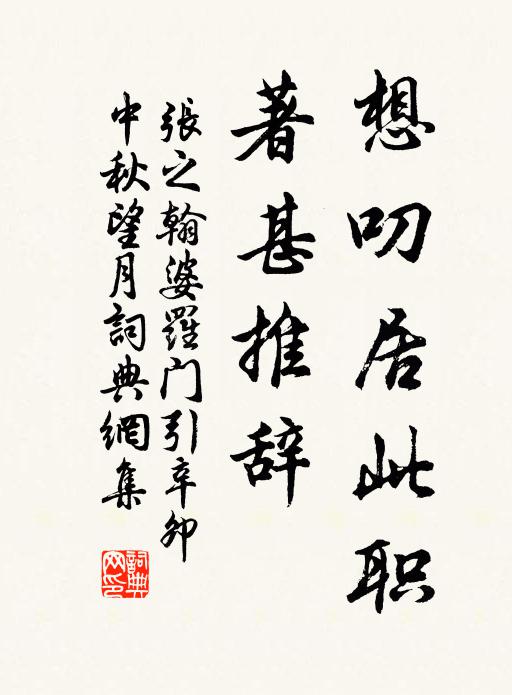 想叨居此职
著甚推辞
張之翰婆羅门引辛卯
中秋望月詞典網集
詞典
网印